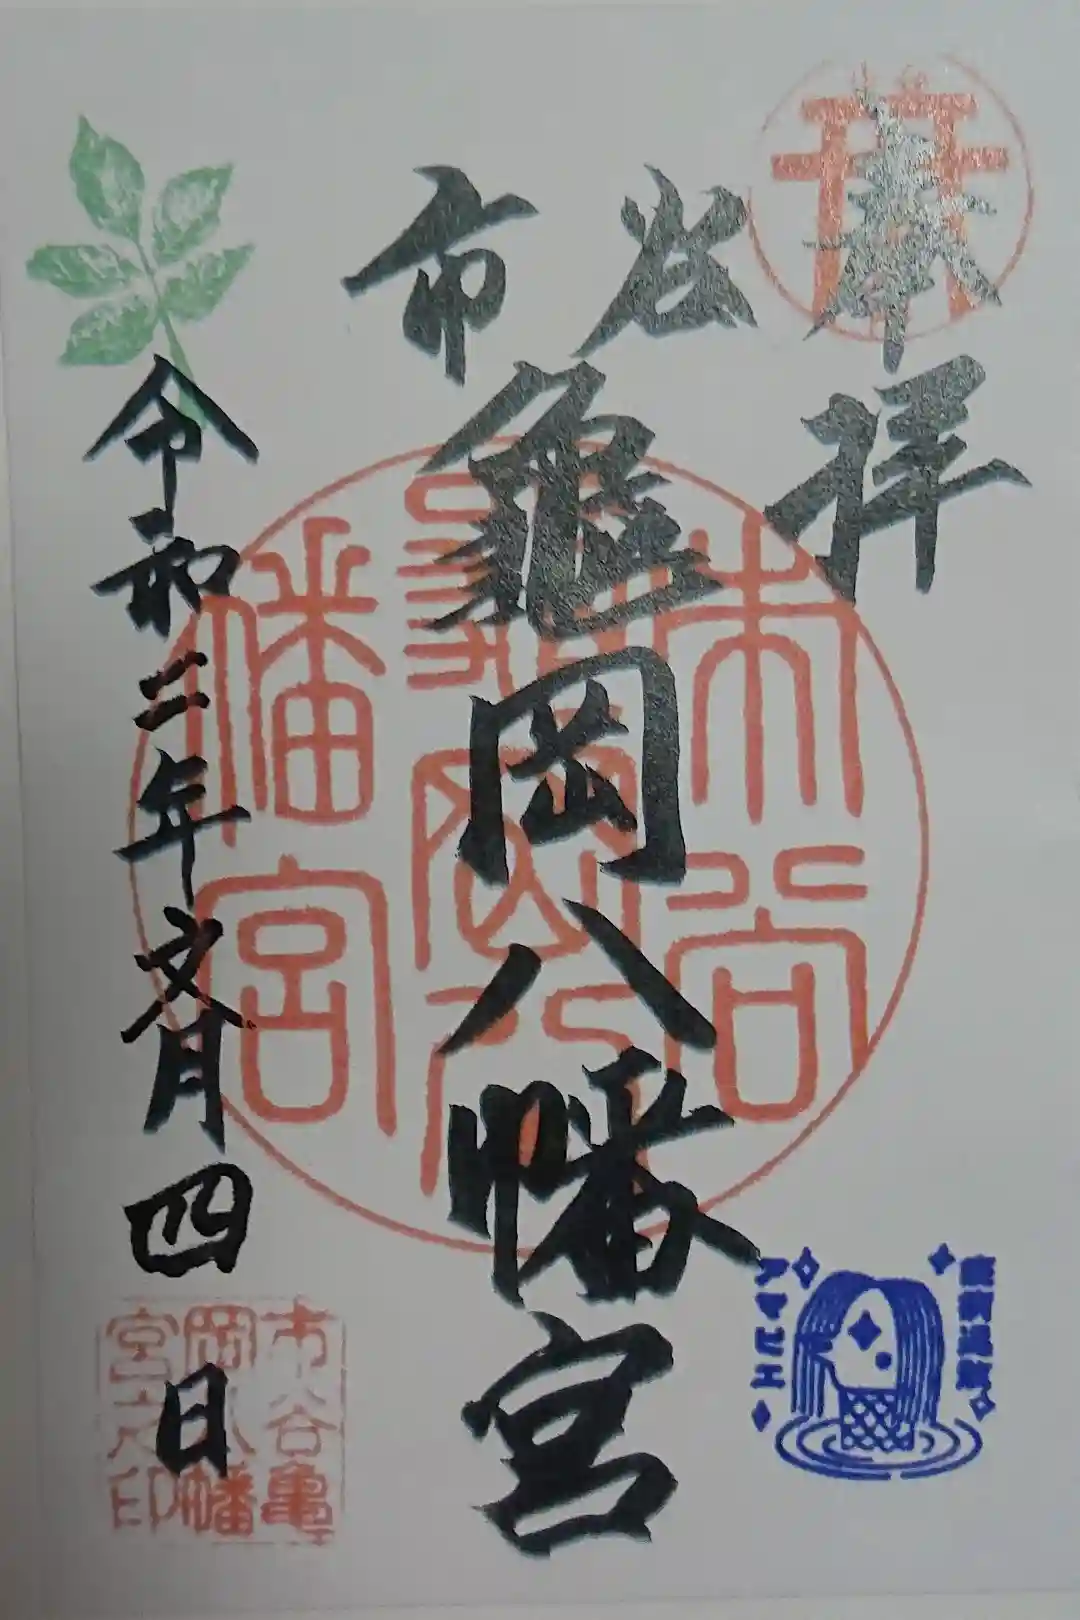 奉拝
市谷
亀岡八幡宮
令和二年文月四日
市谷亀岡八幡宮
市谷亀
岡八幡
宮之印
疫病退散
アマビエ